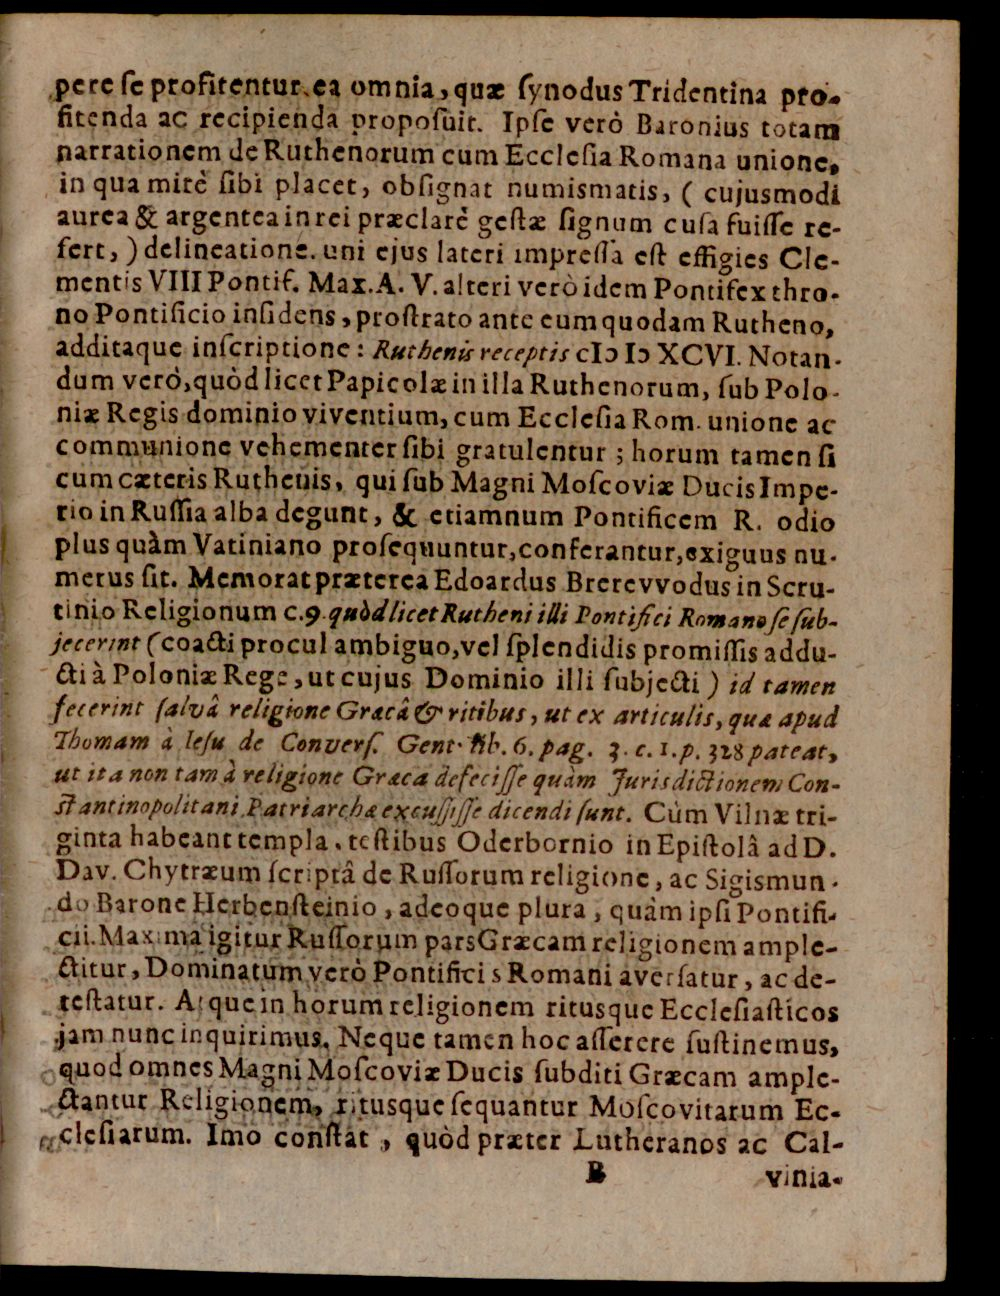 pere ſe profitentur ea omnia, quæ ſynodus Tridentina pro-
fitenda ac recipienda propoſuit. Ipſe verò Baronius totam
narrationem de Ruthenorum cum Eccleſia Romana unione,
in qua mirè ſibi placet, obſignat numismatis, ( cujusmodi
aurea & argentea in rei præclarè geſtæ ſignum cuſa fuiſſe re-
fert, ) delineatione. uni ejus lateri impreſſa eſt effigies Cle-
mentis VIII Pontif. Max. A. V. alteri verò idem Pontifex thro-
no Pontificio inſidens, proſtrato ante eum quodam Rutheno,
additaque inſcriptione: Ruthenis receptis cIↄ Iↄ XCVI. Notan-
dum verò, quòd licet Papicolæ in illa Ruthenorum, ſub Polo-
niæ Regis dominio viventium, cum Eccleſia Rom. unione ac
communione vehementer ſibi gratulentur ; horum tamen ſi
cum cæteris Ruthenis, qui ſub Magni Moſcoviæ Ducis Impe-
rio in Ruſſia alba degunt, & etiamnum Pontificem R. odio
plus quàm Vatiniano proſequuntur, conferantur, exiguus nu-
merus ſit. Memorat præterea Edoardus Brerevvodus in Scru-
tinio Religionum c. 9. quòd licet Rutheni illi Pontifici Romano ſe ſub-
jecerint (coacti procul ambiguo, vel ſplendidis promiſſis addu-
cti à Poloniæ Rege, ut cujus Dominio illi ſubjecti ) id tamen
fecerint ſalvâ religione Græcâ & ritibus, ut ex articulis, quæ apud
Thomam à Ieſu de Converſ. Gent. lib. 6. pag. 3. c. 1. p. 328 pateat,
ut ita non tam à religione Græca defeciſſe quàm Jurisdictionem Con-
ſtantinopolitani Patriarchæ excuſſiſſe dicendi ſunt. Cùm Vilnæ tri-
ginta habeant templa, teſtibus Oderbornio in Epiſtolâ ad D.
Dav. Chytræum ſcriptâ de Ruſſorum religione, ac Sigismun-
do Barone Herbenſteinio, adeoque plura, quàm ipſi Pontifi-
cii. Maxima igitur Ruſſorum pars Græcam religionem ample-
ctitur, Dominatum verò Pontificis Romani averſatur, ac de-
teſtatur. Atque in horum religionem ritusque Eccleſiaſticos
jam nunc inquirimus. Neque tamen hoc aſſerere ſuſtinemus,
quod omnes Magni Moſcoviæ Ducis ſubditi Græcam ample-
ctantur Religionem, ritusque ſequantur Moſcovitarum Ec-
cleſiarum. Imo conſtat, quòd præter Lutheranos ac Cal-
B vinia-